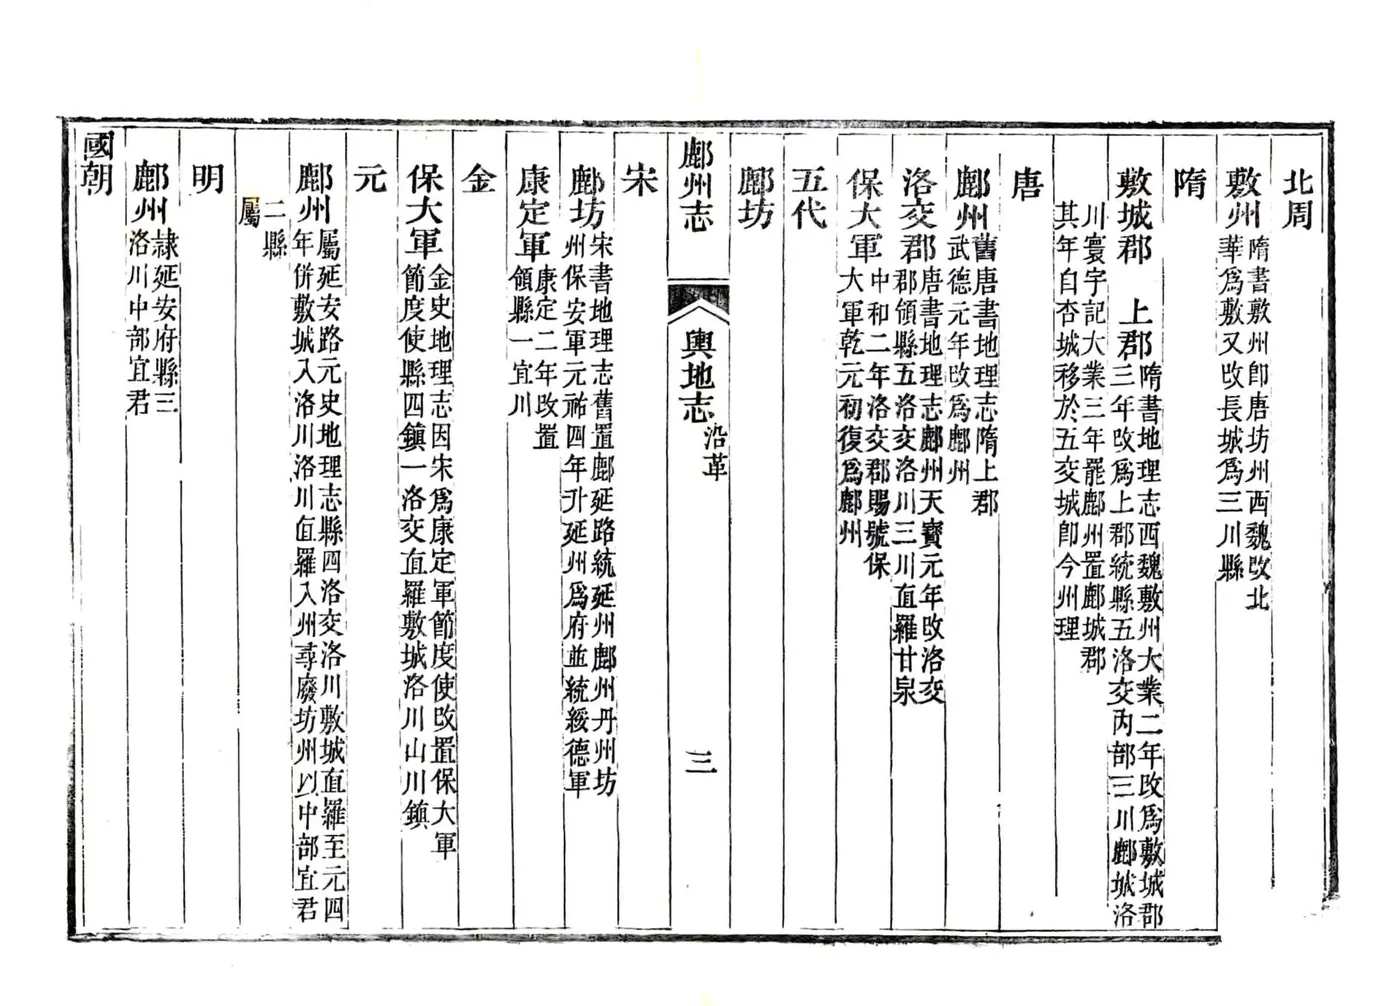 北周
敷州隋書敷州卽唐坊州西魏改北
華爲敷又改長城爲三川縣
隋
敷城郡 上郡隋書地理志西魏敷州大業二年改爲敷城郡
三年改爲上郡統縣五洛交內部三川鄜城洛
川寰宇記大業三年罷鄜州置鄜城郡
其年自杏城移於五交城卽今州理
唐
鄜州舊唐書地理志隋上郡
武德元年改爲鄜州
洛交郡唐書地理志鄜州天寶元年改洛交
郡領縣五洛交洛川三川直羅甘泉
保大軍中和二年洛交郡賜號保
大軍乾元初復爲鄜州
五代
鄜坊
鄜州志
輿地志沿革
三
宋
鄜坊宋書地理志舊置鄜延路統延州鄜州丹州坊
州保安軍元祐四年升延州爲府並統綏德軍
康定軍康定二年改置
領縣一宜川
金
保大軍金史地理志因宋爲康定軍節度使改置保大軍
節度使縣四鎮一洛交直羅敷城洛川山川鎮
元
鄜州屬延安路元史地理志縣四洛交洛川敷城直羅至元四
年併敷城入洛川洛川直羅入州尋廢坊州以中部宜君
二縣
屬
明
鄜州隷延安府縣三
洛川中部宜君
國朝